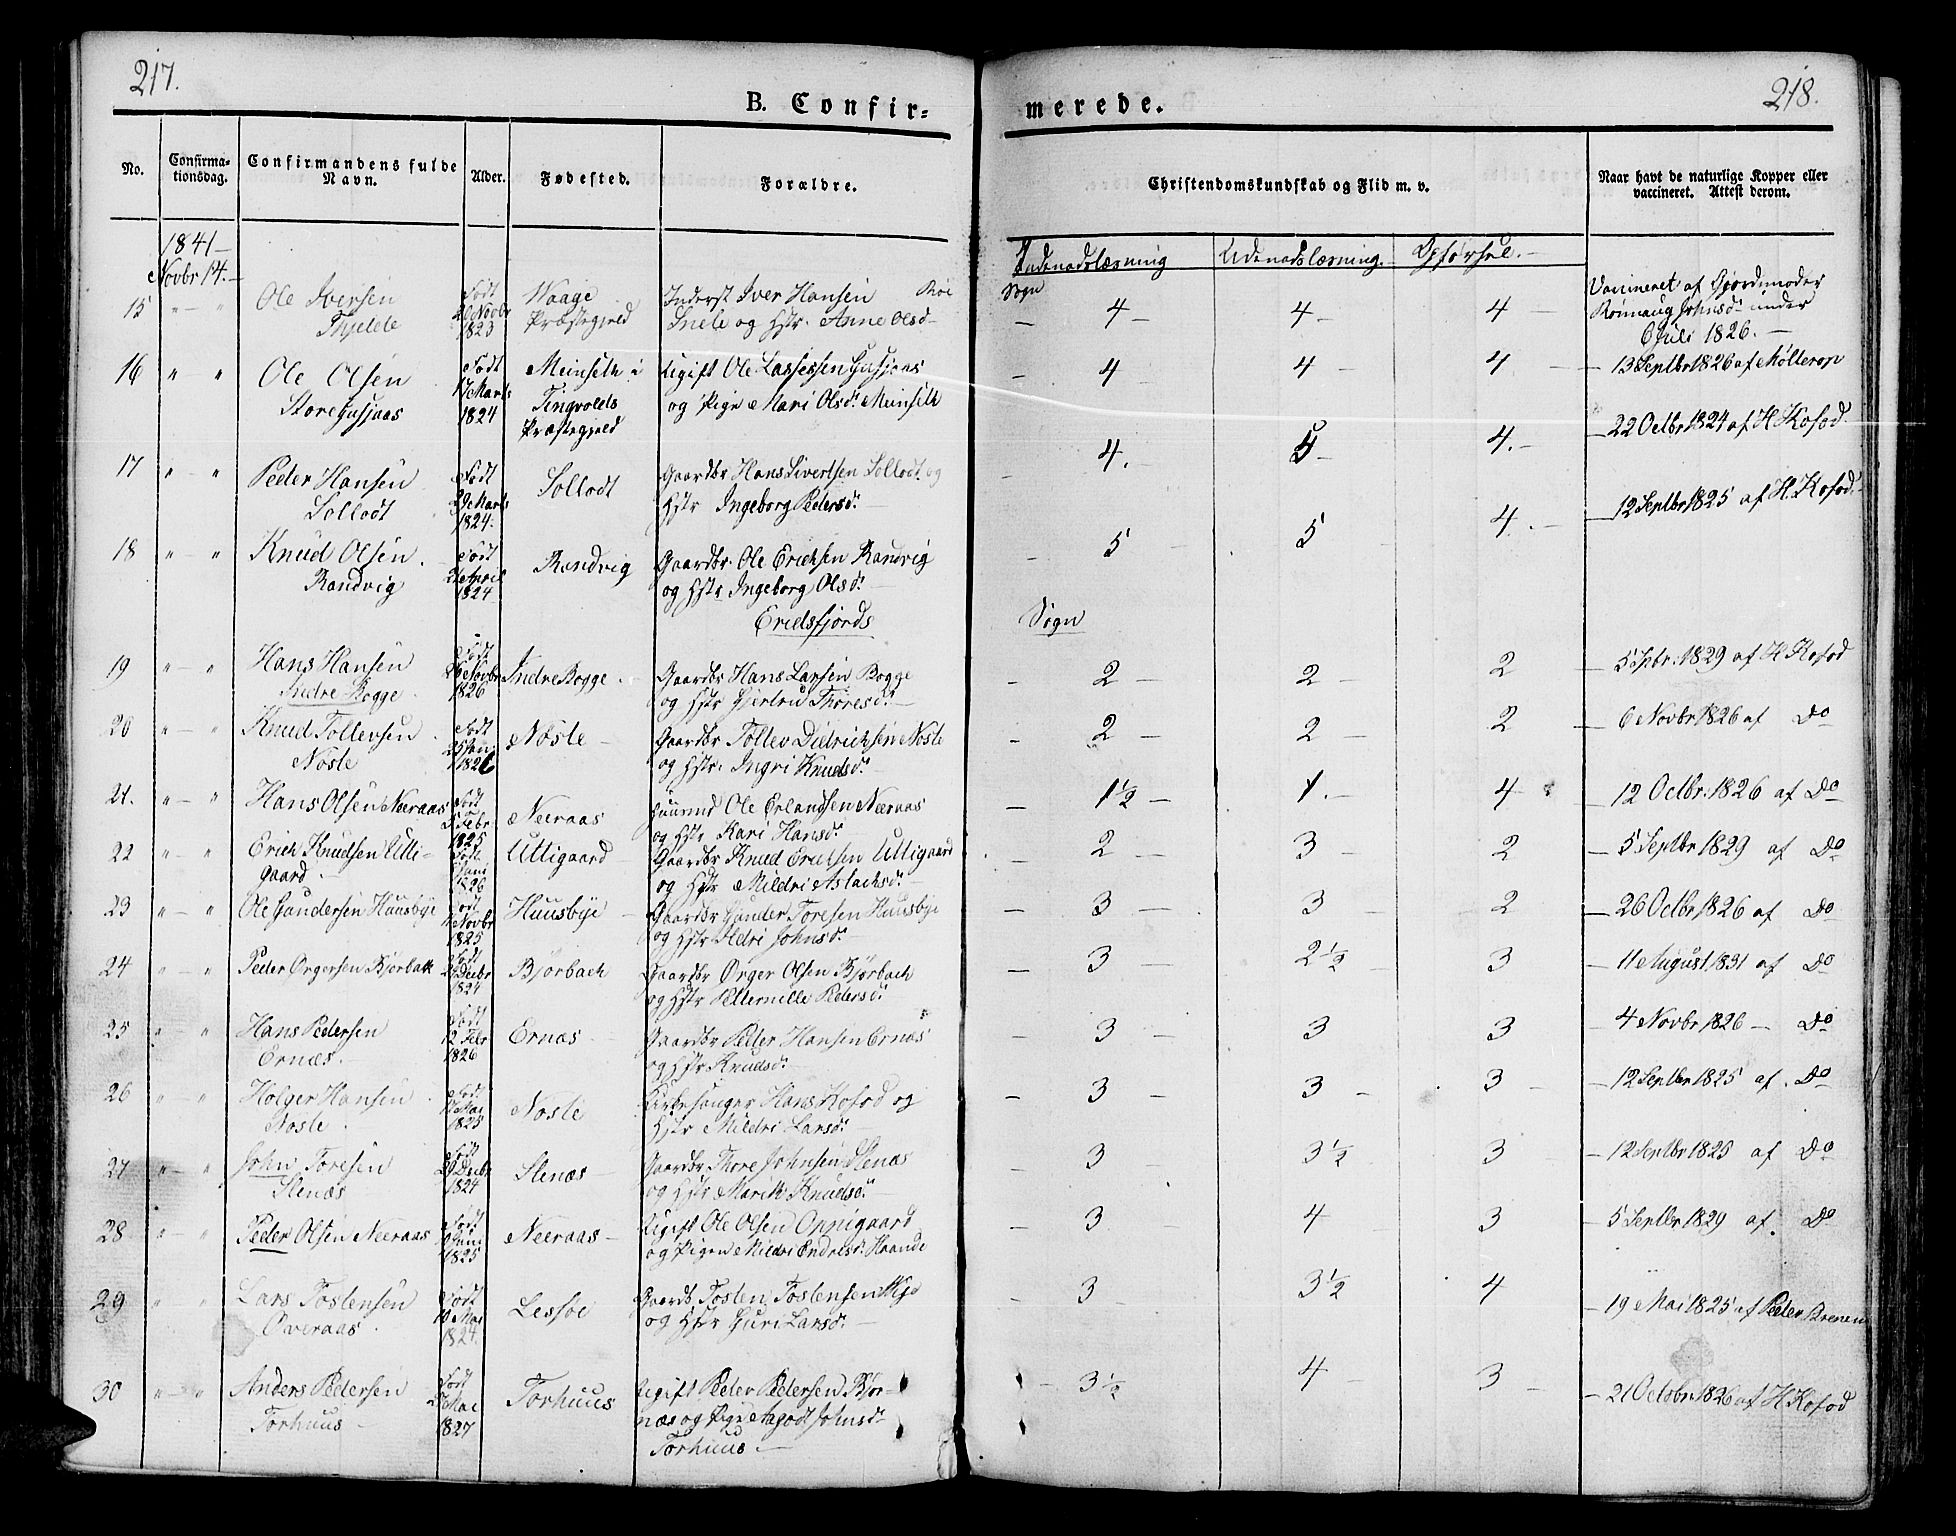 217.
B. Confir-
No.
Confirma-
tionsdag.
Confirmandens fulde
Navn.
Alder.
Fødested.
Forældre.
1841
Novbr 14.
15 " — " Ole Iversen Født Waage Inderst Iver Hansen
20 Novbr Præstegjeld og Hstr. Anne Olsd.
1823
16 " " Ole Olsen Født Meinseth i Ugift Ole Lassessen Gusjaas
Store Gusjaas 17 Marts Tingvolds og Pige Mari Olsd. Meinseth
1824 Præstegjeld
17 " " Peder Hansen Født Sollodt Gaardbr Hans Sivertsen Sollodt og
Sollodt 29 Marts Hstr Ingeborg Pedersd.
1824.
18 " " Knud Olsen Født Randvig Gaardbr. Ole Erichsen Randvig
Randvig April og Hstr Ingeborg Olsd.
1824
Eridsfjords
19 " " Hans Hansen Født Indre Bogge Gaardbr Hans Larsen Bogge
Indre Bogge 26 Novbr og Hstr Gjertru Thoresd.
1826
20 " — " Knud Tollevsen Født Nøste Gaardbr Tollev Didrichsen Nøste
Nøste 25 Jan. og Hstr. Ingri Knudsd.
1826
21. " — " Hans Olsen Neeraas Født Neeraas Huusmd Ole Erlandsen Neeraas
5 Febr og Hstr Kari Hansd.
1825
22 " — " Erich Knudsen Utti- Født Uttigaard Gaardbr Knud Erichsen Uttigaard
gaard Jani og Hstr Mildri Aslachsd.
1826
23 " — " Ole Gundersen Huusbye Født Huusbye Gaardbr Gunder Toresen Huusbye
11 Novbr og Hstr Ildri Johnsd.
1825
24 " — " Peder Ørgersen Bjørbak Født Bjørbach Gaardbr Ørger Olsen Bjørbach
Decbr og Hstr Pedersd.
1824
25 " — " Hans Pedersen Født Ernæs Gaardbr Peder Hansen Ernæs
Ernæs. 12 Febr og Hstr Knudsd.
1826
26 " — " Holger Hansen Født Nøste Kirkesanger Hans Kofod og
Nøste 17 Mai Hstr Mildri Larsd.
1825
27 " — " John Toresen Født Stenæs Gaardbr Thore Johnsen Stenæs
Stenæs 29 Decbr og Hstr Marit Knudsd.
1824
28 " — " Peder Olsen Neeraas Født Neeraas Ugift Ole Olsen Oppigaard
Jani og Pigen Mildri Endresd.
1825
29 " " Lars Tostensen Født Lessøe Gaardb. Tosten Tostensen
Øveraas 10 Mai og Hstr Guri Larsd.
1824
30 " — " Anders Pedersen Født Torhuus Ugift Peder Pedersen Bjør-
Torhuus Mai næs og Pige Aagodt Johnsd.
1827 Torhuus
218.
merede.
Christendomskundskab og Flid m. v.
Naar havt de naturlige Kopper eller
vaccineret. Attest derom.
Indenadslæsning Udenadslæsning. Opførsel.
Sogn
Vaccineret af Gjordemoder
— 4 — 4 — 4 — Rønnaug Johnsd. under
6 Juli 1826.
— 4 — 4 — 4 — 13 Septbr 1826 af Møllerop
— 4. 5 — 4. — 22 Octbr 1824 af H Kofod.
— 5 — 5 4. — 12 Septbr 1825 af H. Kofod.
Sogn
— 2 — 2 — 2 — 5 Spbr. 1829 af H Kofod
— 2 — 2 — 2 — 6 Novbr 1826 af Do
— 1½ — 1. — 4 — 12 Octbr. 1826 af Do
— 2 — 3 — 2 — 5 Septbr 1829 af Do
— 3 — 3 — 2 — 26 Octbr 1826 af Do
— 3 — 2½ — 3 — 11 August 1831 af Do
3 3 3 — 4 Novbr 1826 — Do
— 3 — 3 — 3 — 12 Septbr 1825 af. Do
— 3 3½ 3 — 12 Septbr 1825 af Do
— 3 4 3 — 5 Septbr 1829 af. Do
— 3 3½ 4 — 19 Mai 1825 af Peder
— 3½ 4 — 3 — 21 Octobr. 1826 af H Kofod